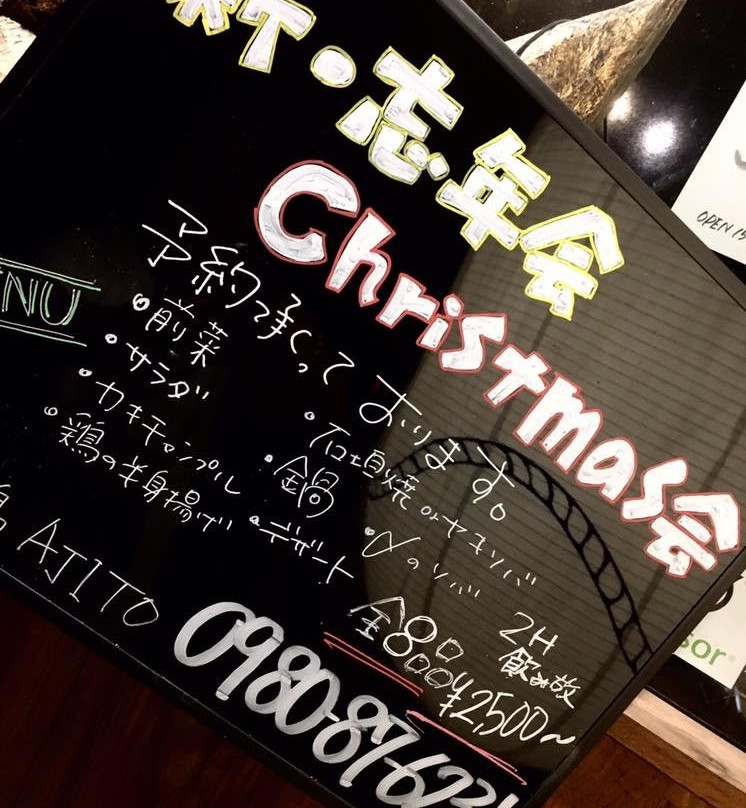 ・忘年会
Christmas会
予約て承っております。
MENU
・前菜
・サラダ
・カキチャンプル
・鶏の半身揚げ
・石垣焼のヤキソバ
・鍋
・デザート
・〆のソバ
全8品
2H
飲み放
¥2,500〜
AJITO
0980-87-62
OPEN 15
sor